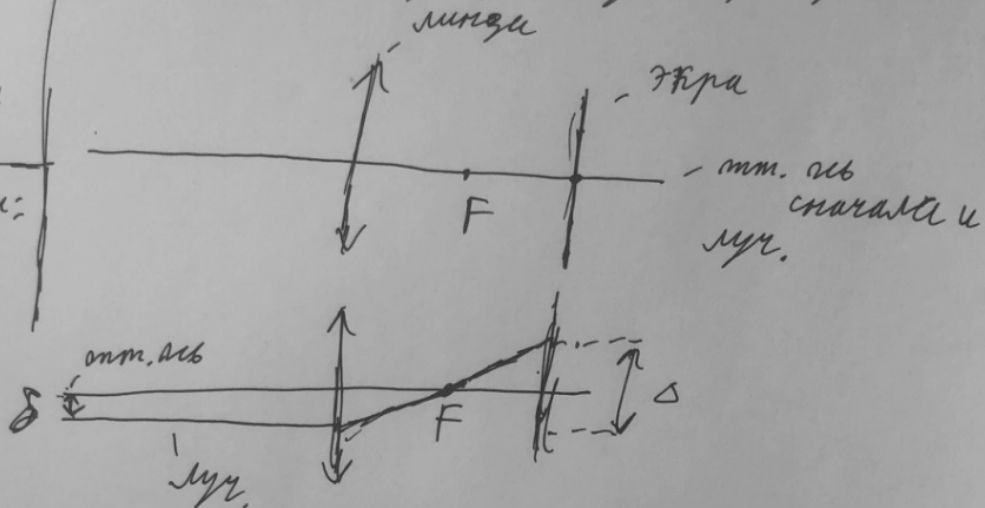 линзы
экра
F
опт. ось
сначала и
луч.
опт. ось
δ
F
Δ
луч.